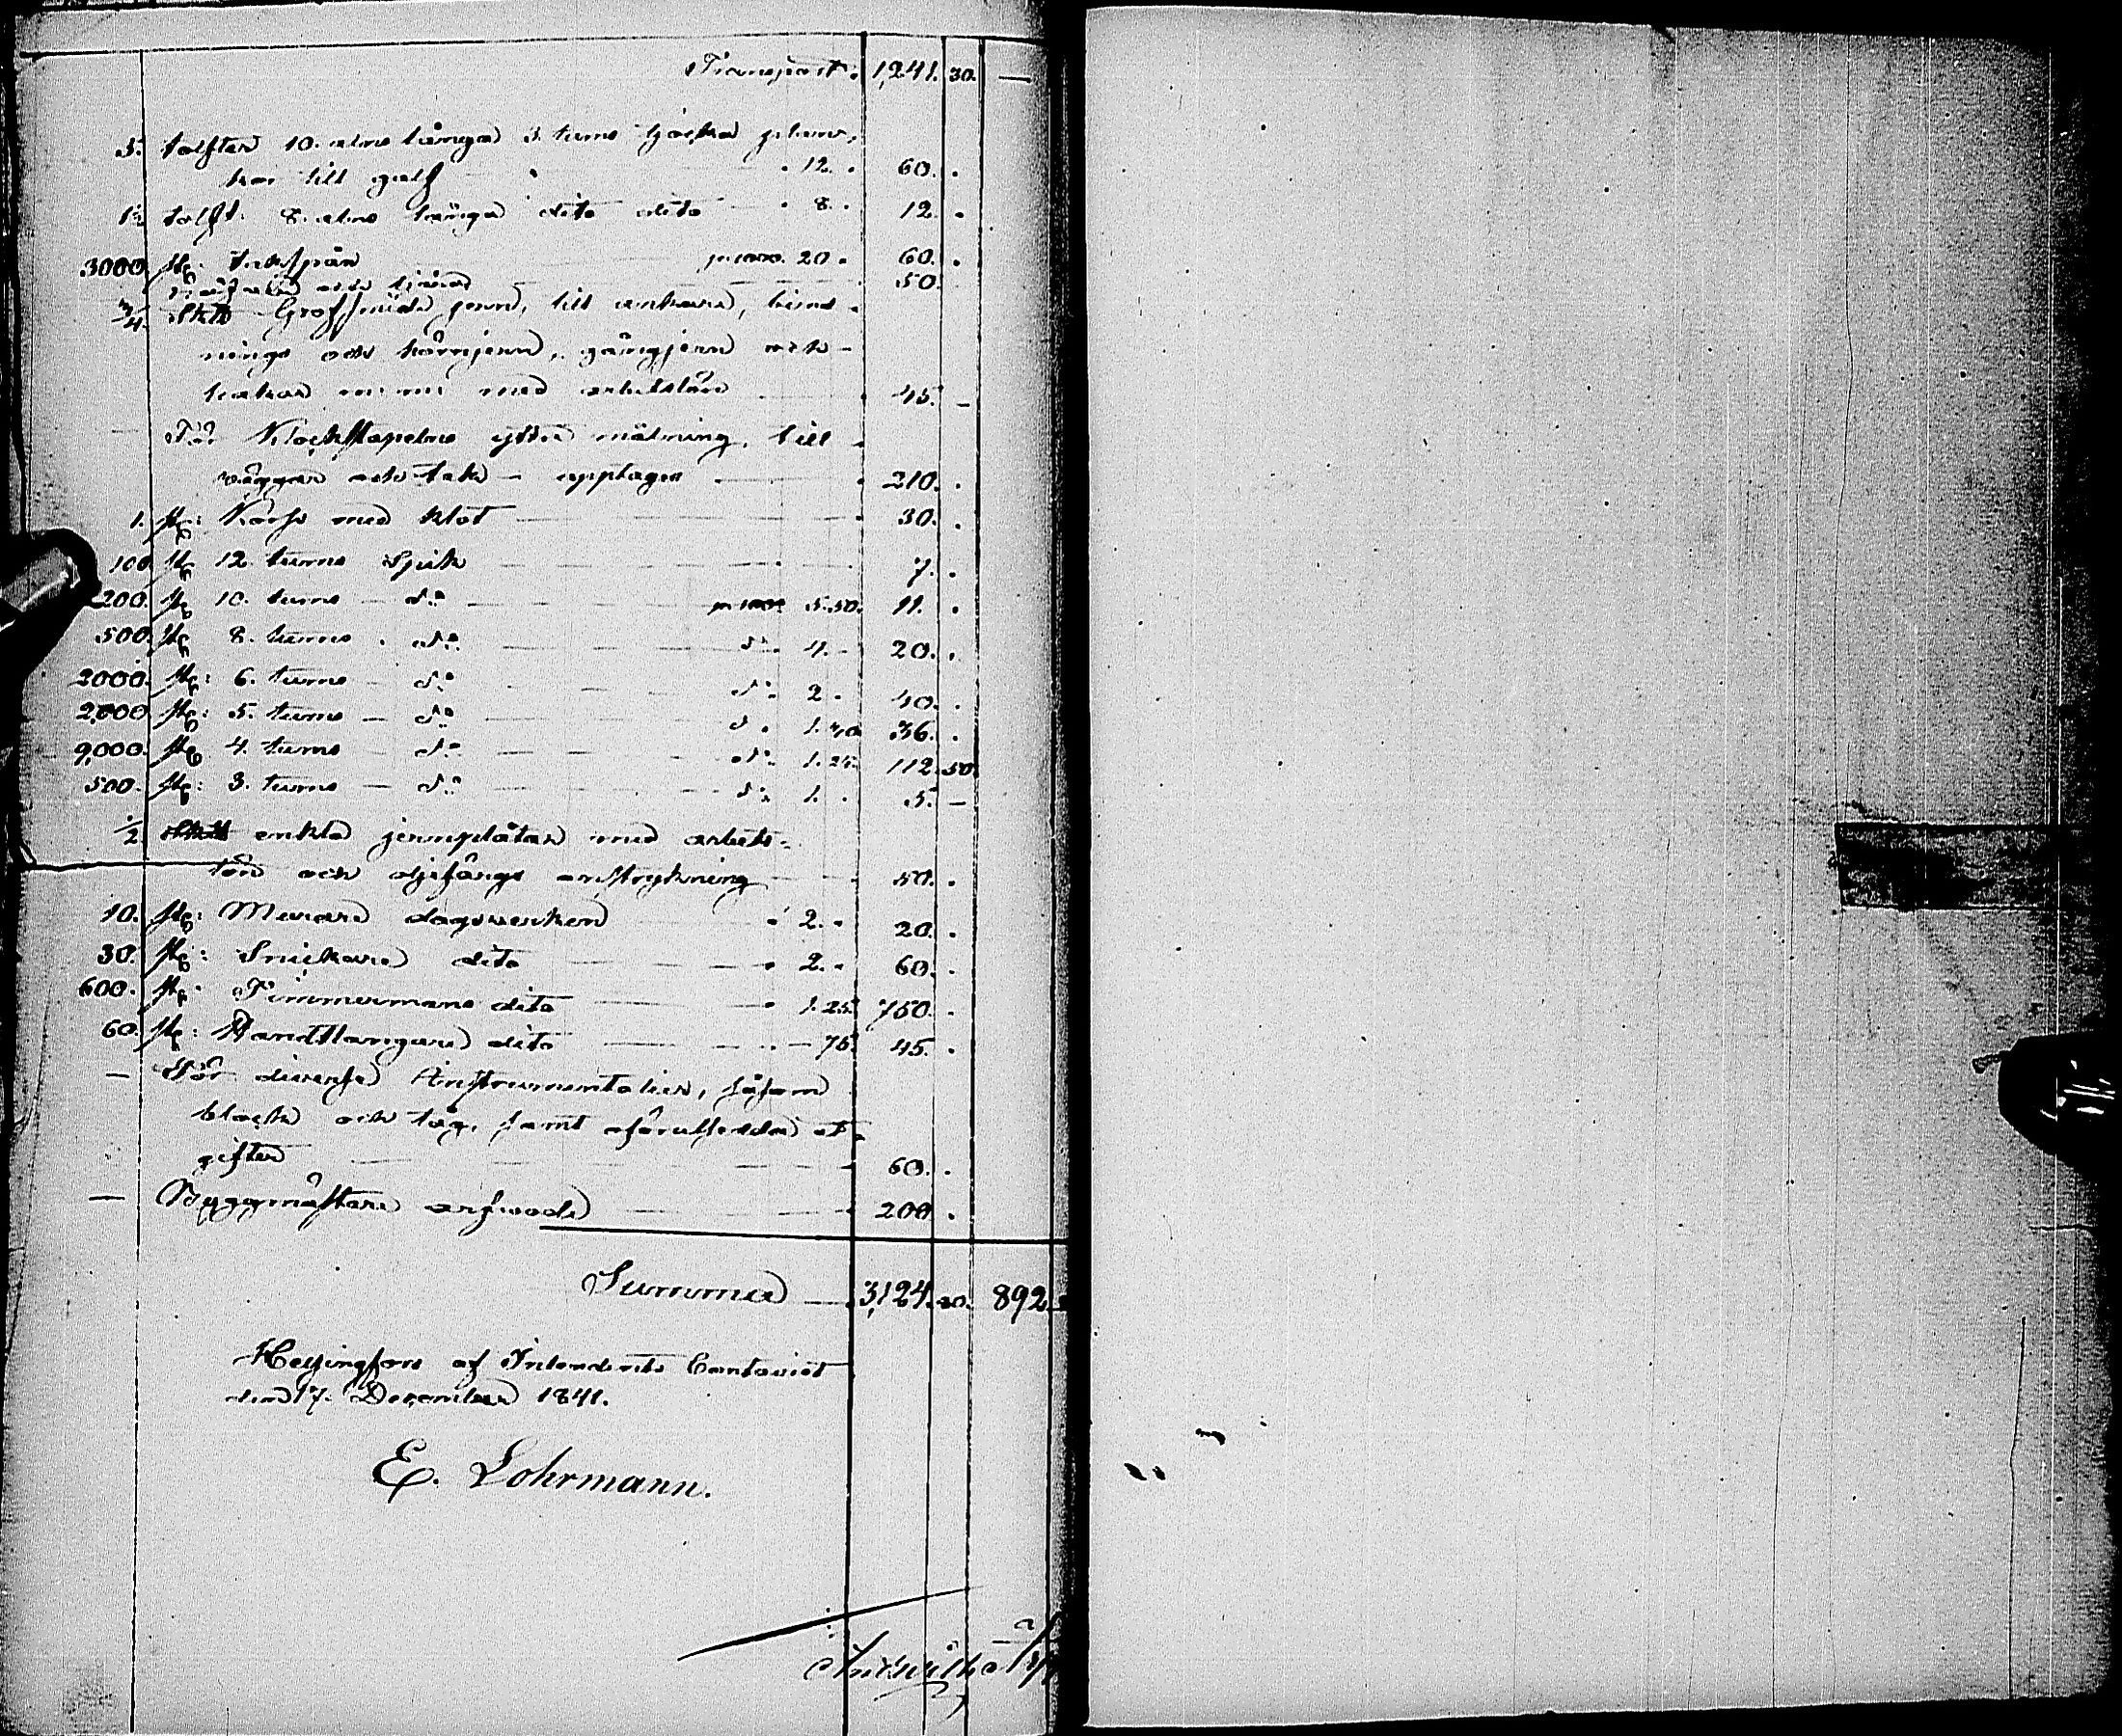 Transport. 1,241. 30. —
5. tolfter 10. alns långa 3. tums tjocka plan-
kor till golf " 12. " 60. "
1½ tolft: 8. alns långa dito dito " 8. " 12. "
3000. st: takspån pr 1000. 20. 60. "
och tjära 50.
¾. Sk℔ Grofsmide jern, till ankare, bind-
nings och hörnjern, gångjern och
hakar m: m: med arbetslön 45. —
— För Klockstapelns yttre målning, till
väggar och tak — upptages 210. "
1. st: Kors med klot 30. "
100 st 12. tums Spik 7. "
200. st 10. tums — d:o pr 100. 5.50. 11. "
500. st 8. tums " d:o d:o 4. — 20. "
2000. st: 6. tums — d:o d:o 2. 40. "
2,000 st: 5. tums — d:o d:o 1.80 36. "
9,000. st 4. tums d:o d:o 1.25. 112. 50.
500. st: 3. tums — d:o d:o 1. " 5. —
½ Sk℔ enkla jernplåtar med arbets-
lön och oljefärgs anstrykning 50. "
10. st: Murare dagsverken " 2. " 20. "
30. st: Snickare dito " 2. " 60. "
600. st: Timmermans dito " 1.25. 750. "
60. st: Handtlangare dito — 75. 45. "
— För diverse Instrumentalier, såsom
block och tåg, samt oförutsedda ut-
gifter 60. "
— Byggmästare arfvode 200 "
Summa 3,124. 80. 892
Helsingfors af Intendents Contoiret
den 17. December 1841.
E. Lohrmann.